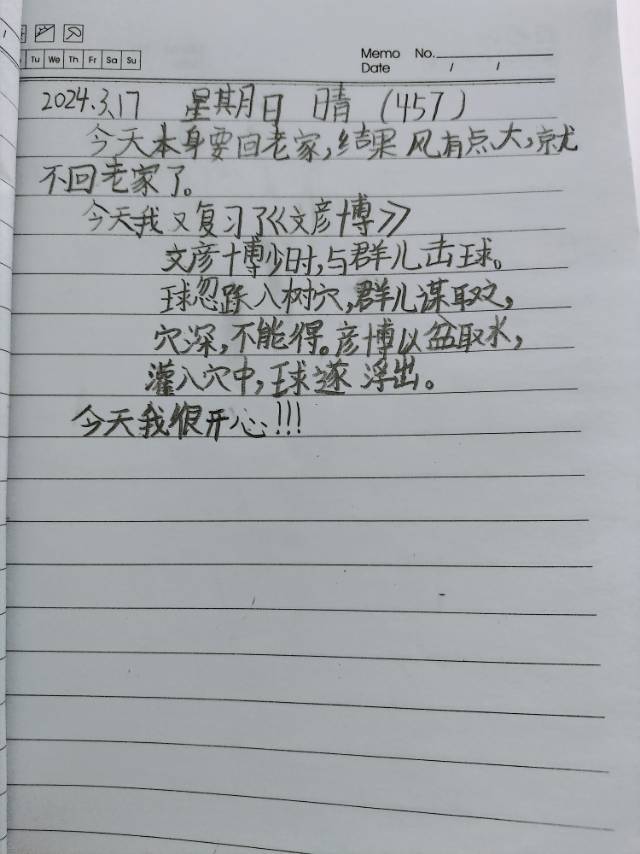 Tu We Th Fr Sa Su
Memo No.
Date / /
2024.3.17 星期日 晴 (457)
今天本身要回老家,结果风有点大,就
不回老家了。
今天我又复习了《文彦博》
文彦博少时,与群儿击球。
球忽跃入树穴,群儿谋取之,
穴深,不能得。彦博以盆取水,
灌入穴中,球遂浮出。
今天我很开心!!!